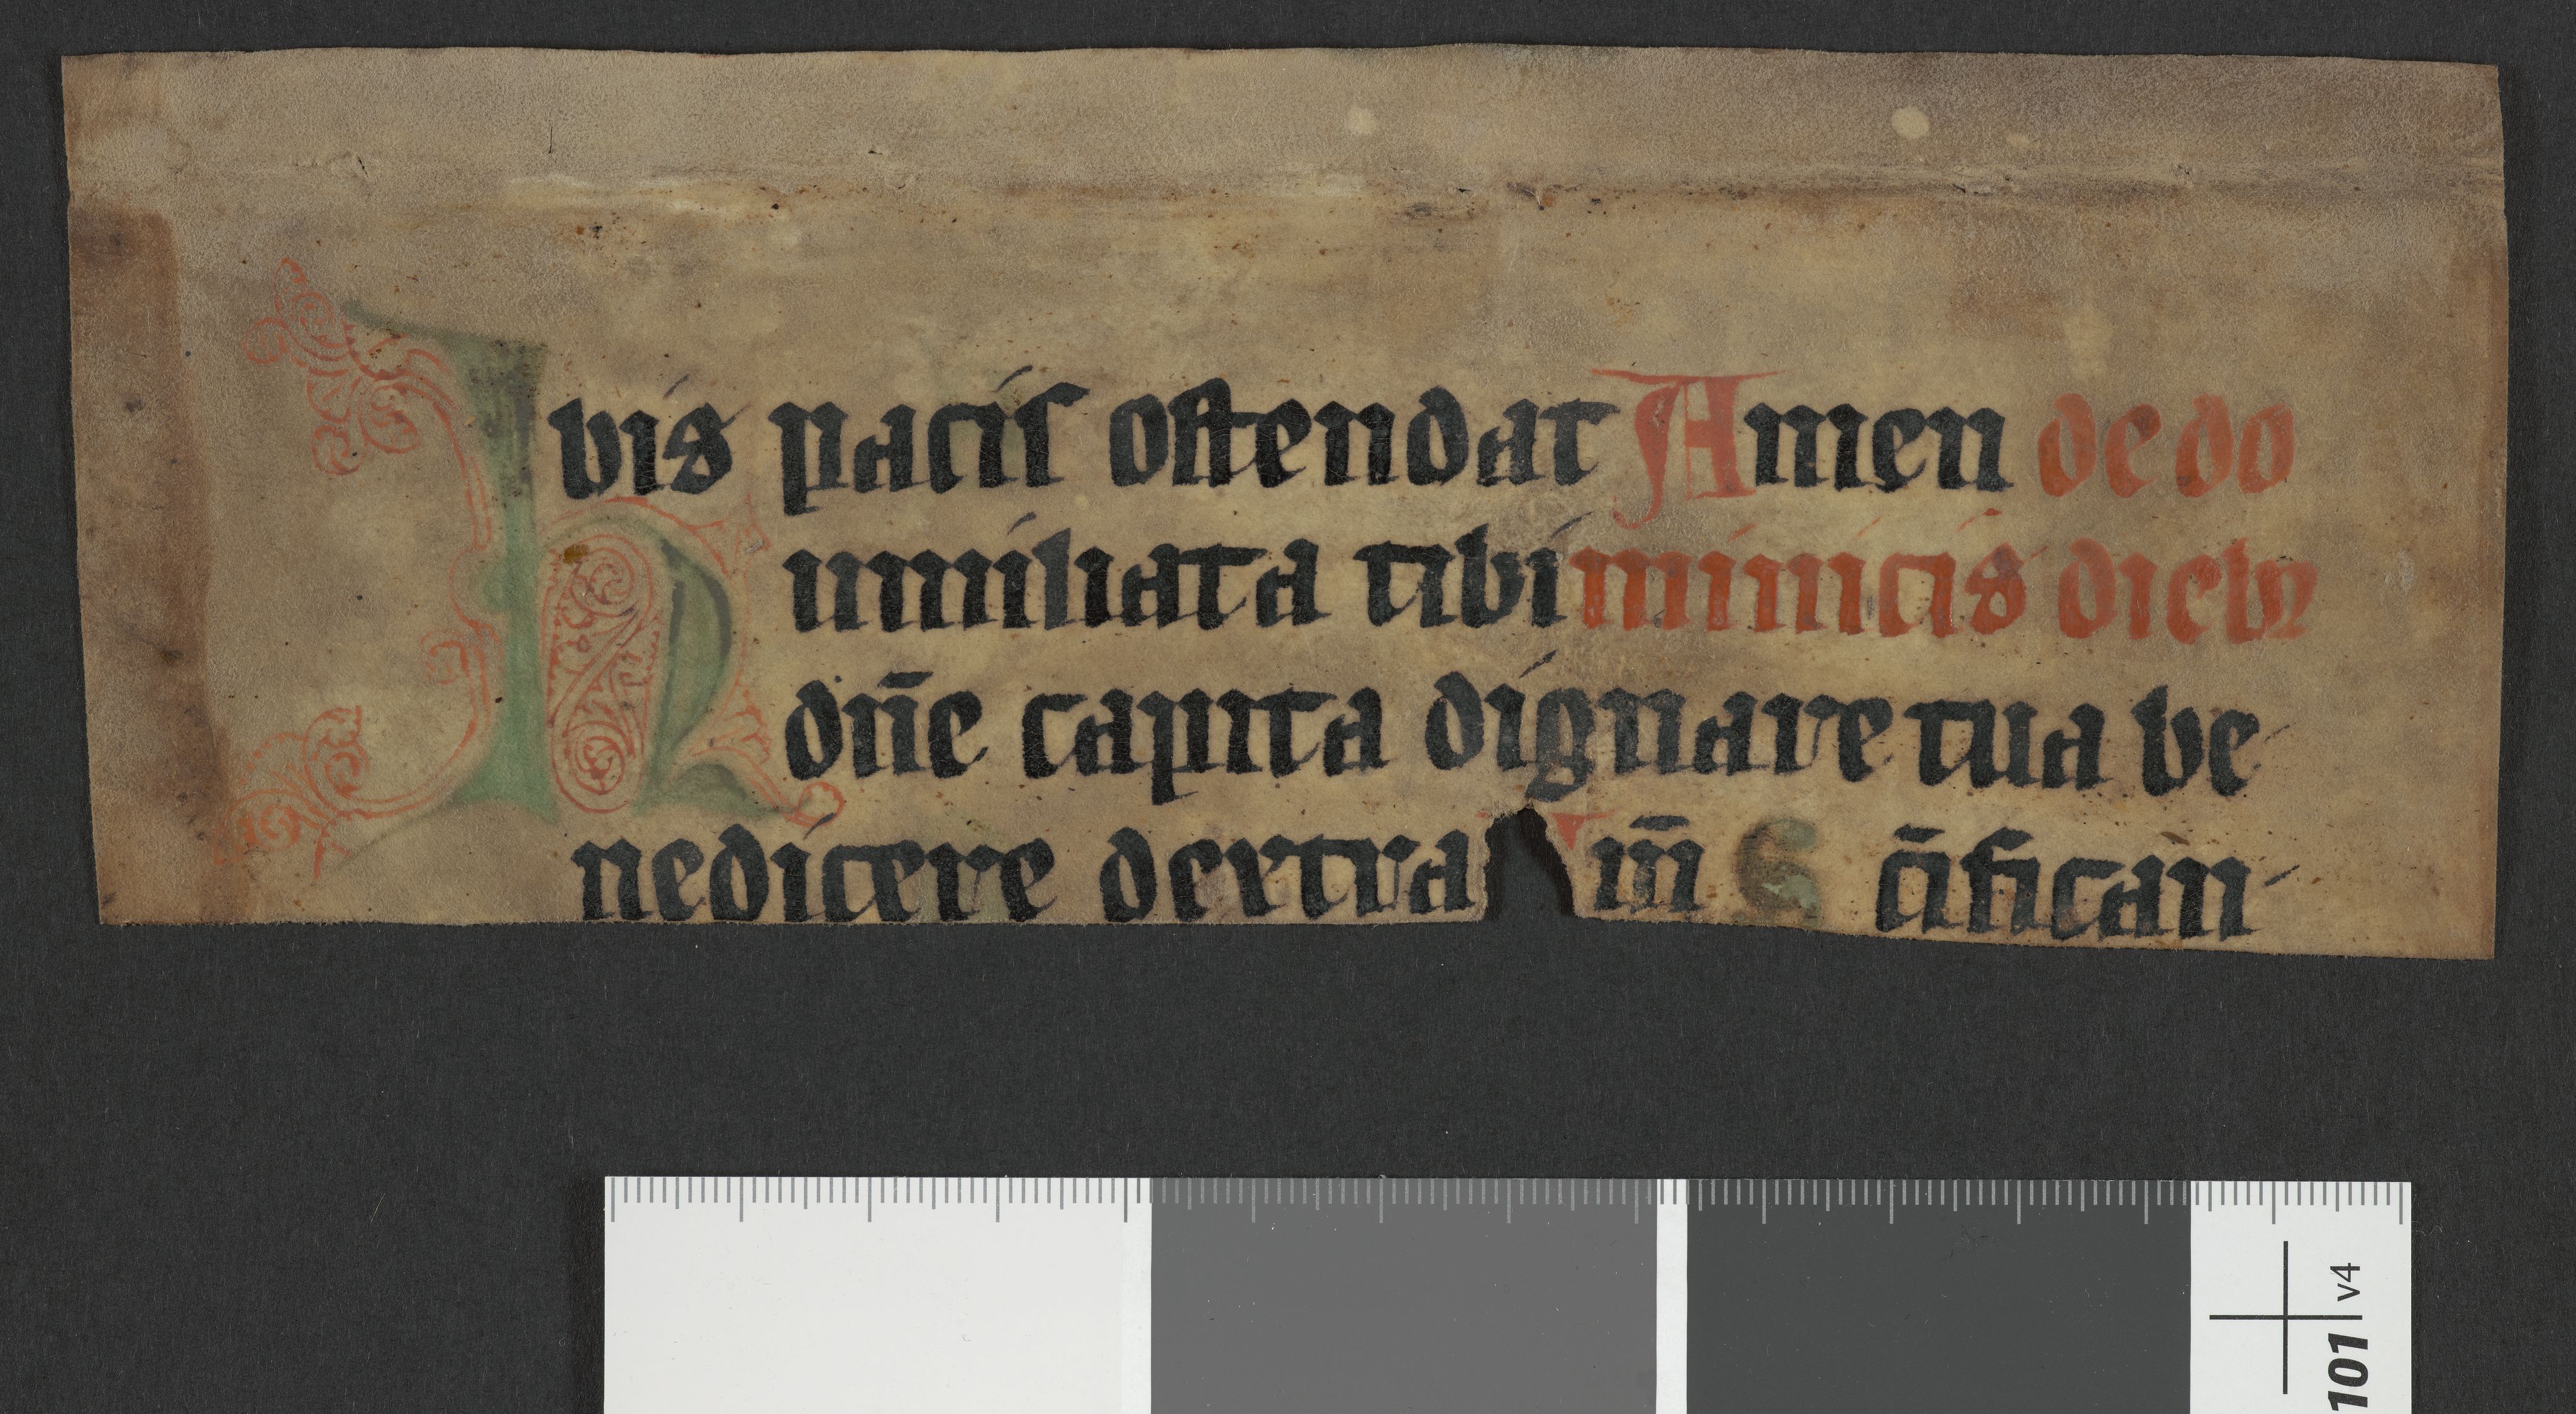 bis pacis ostendat Amen de do
Humiliata tibi minicis dieb9
dn̄e capita dignare tua be
nedicere dextra im̄ S cīfican
101 v4